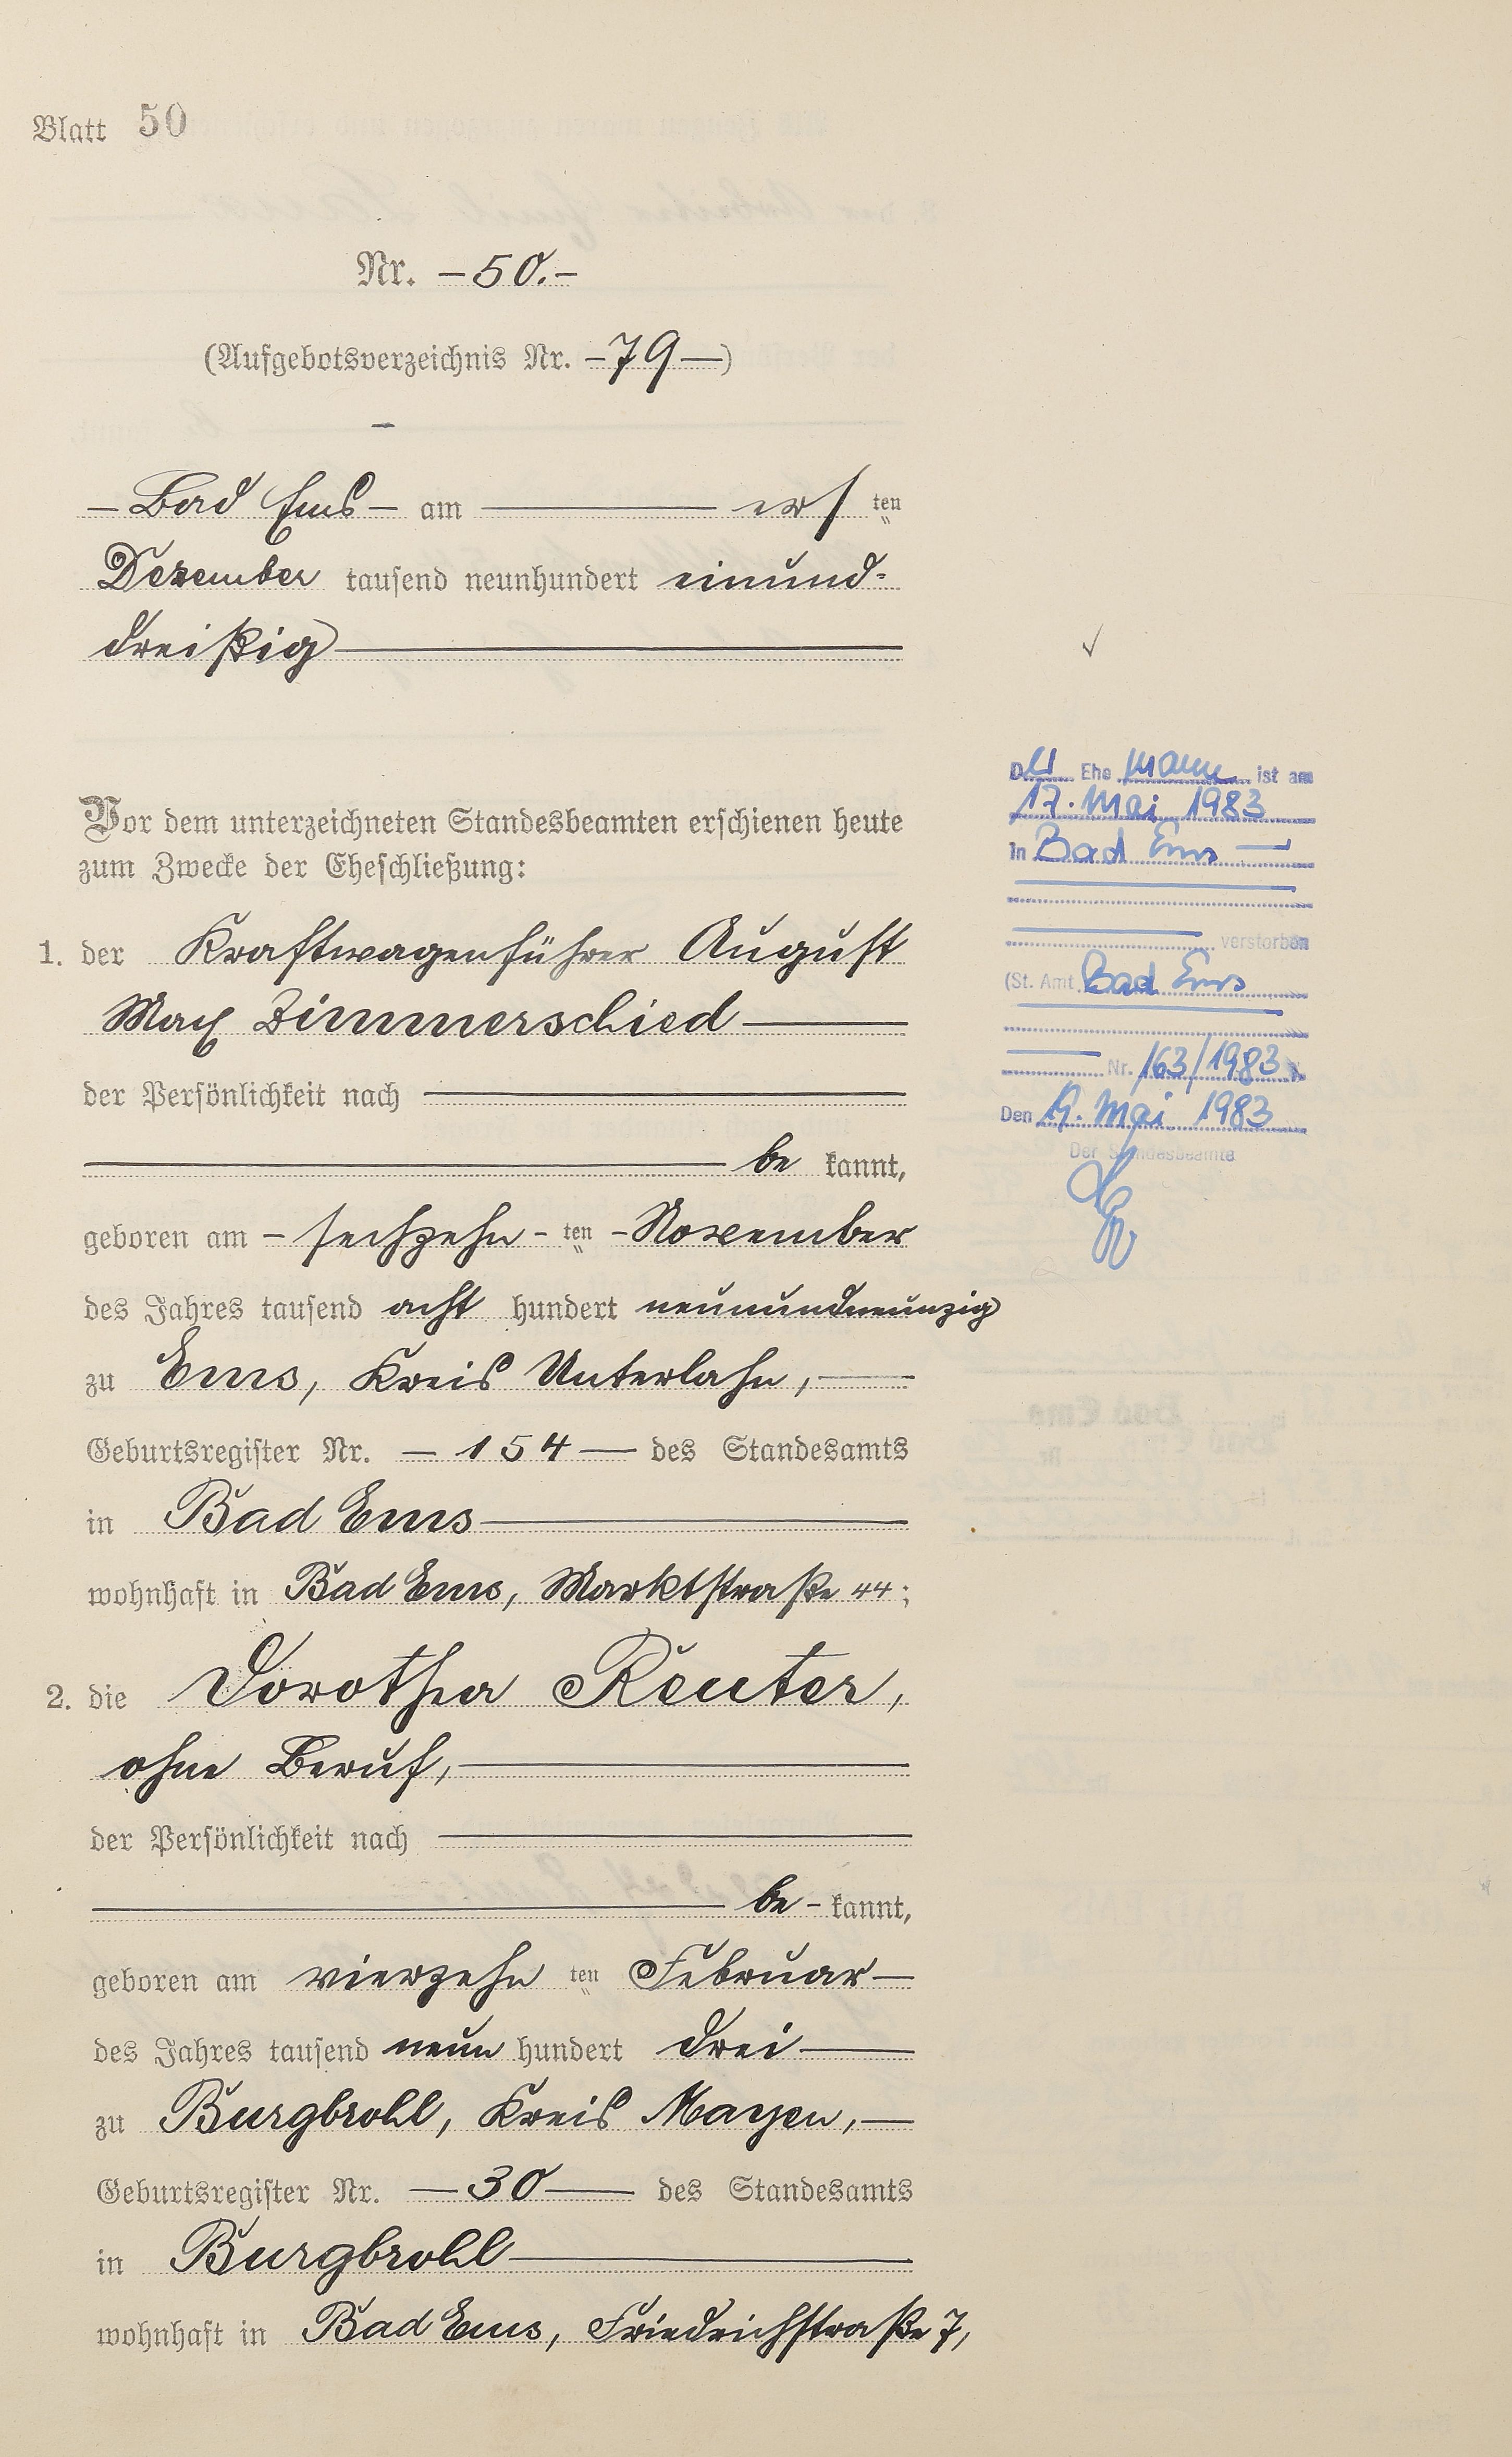 Blatt 50
Nr. – 50. –
(Aufgebotsverzeichnis Nr. – 79 —)
– Bad Ems – am ——— ersten
Dezember tausend neunhundert einund-
dreißig ———
Vor dem unterzeichneten Standesbeamten erschienen heute
zum Zwecke der Eheschließung:
1. der Kraftwagenführer August
Max Zimmerschied ———
der Persönlichkeit nach ———
——— be kannt,
geboren am – sechzehn - ten – November
des Jahres tausend acht hundert neunundneunzig
zu Ems, Kreis Unterlahn, —
Geburtsregister Nr. — 154 — des Standesamts
in Bad Ems ———
wohnhaft in Bad Ems, Marktstraße 44;
2. die Dorothea Reuter,
ohne Beruf, ———
der Persönlichkeit nach ———
——— be - kannt,
geboren am vierzehn ten Februar —
des Jahres tausend neun hundert drei ——
zu Burgbrohl, Kreis Mayen, —
Geburtsregister Nr. — 30 — des Standesamts
in Burgbrohl ———
wohnhaft in Bad Ems, Friedrichstraße 7,
Der Ehe mann ist am
17. Mai 1983
in Bad Ems —
verstorben
(St. Amt Bad Ems
Nr. 163/1983).
Den 19. Mai 1983
Der Standesbeamte